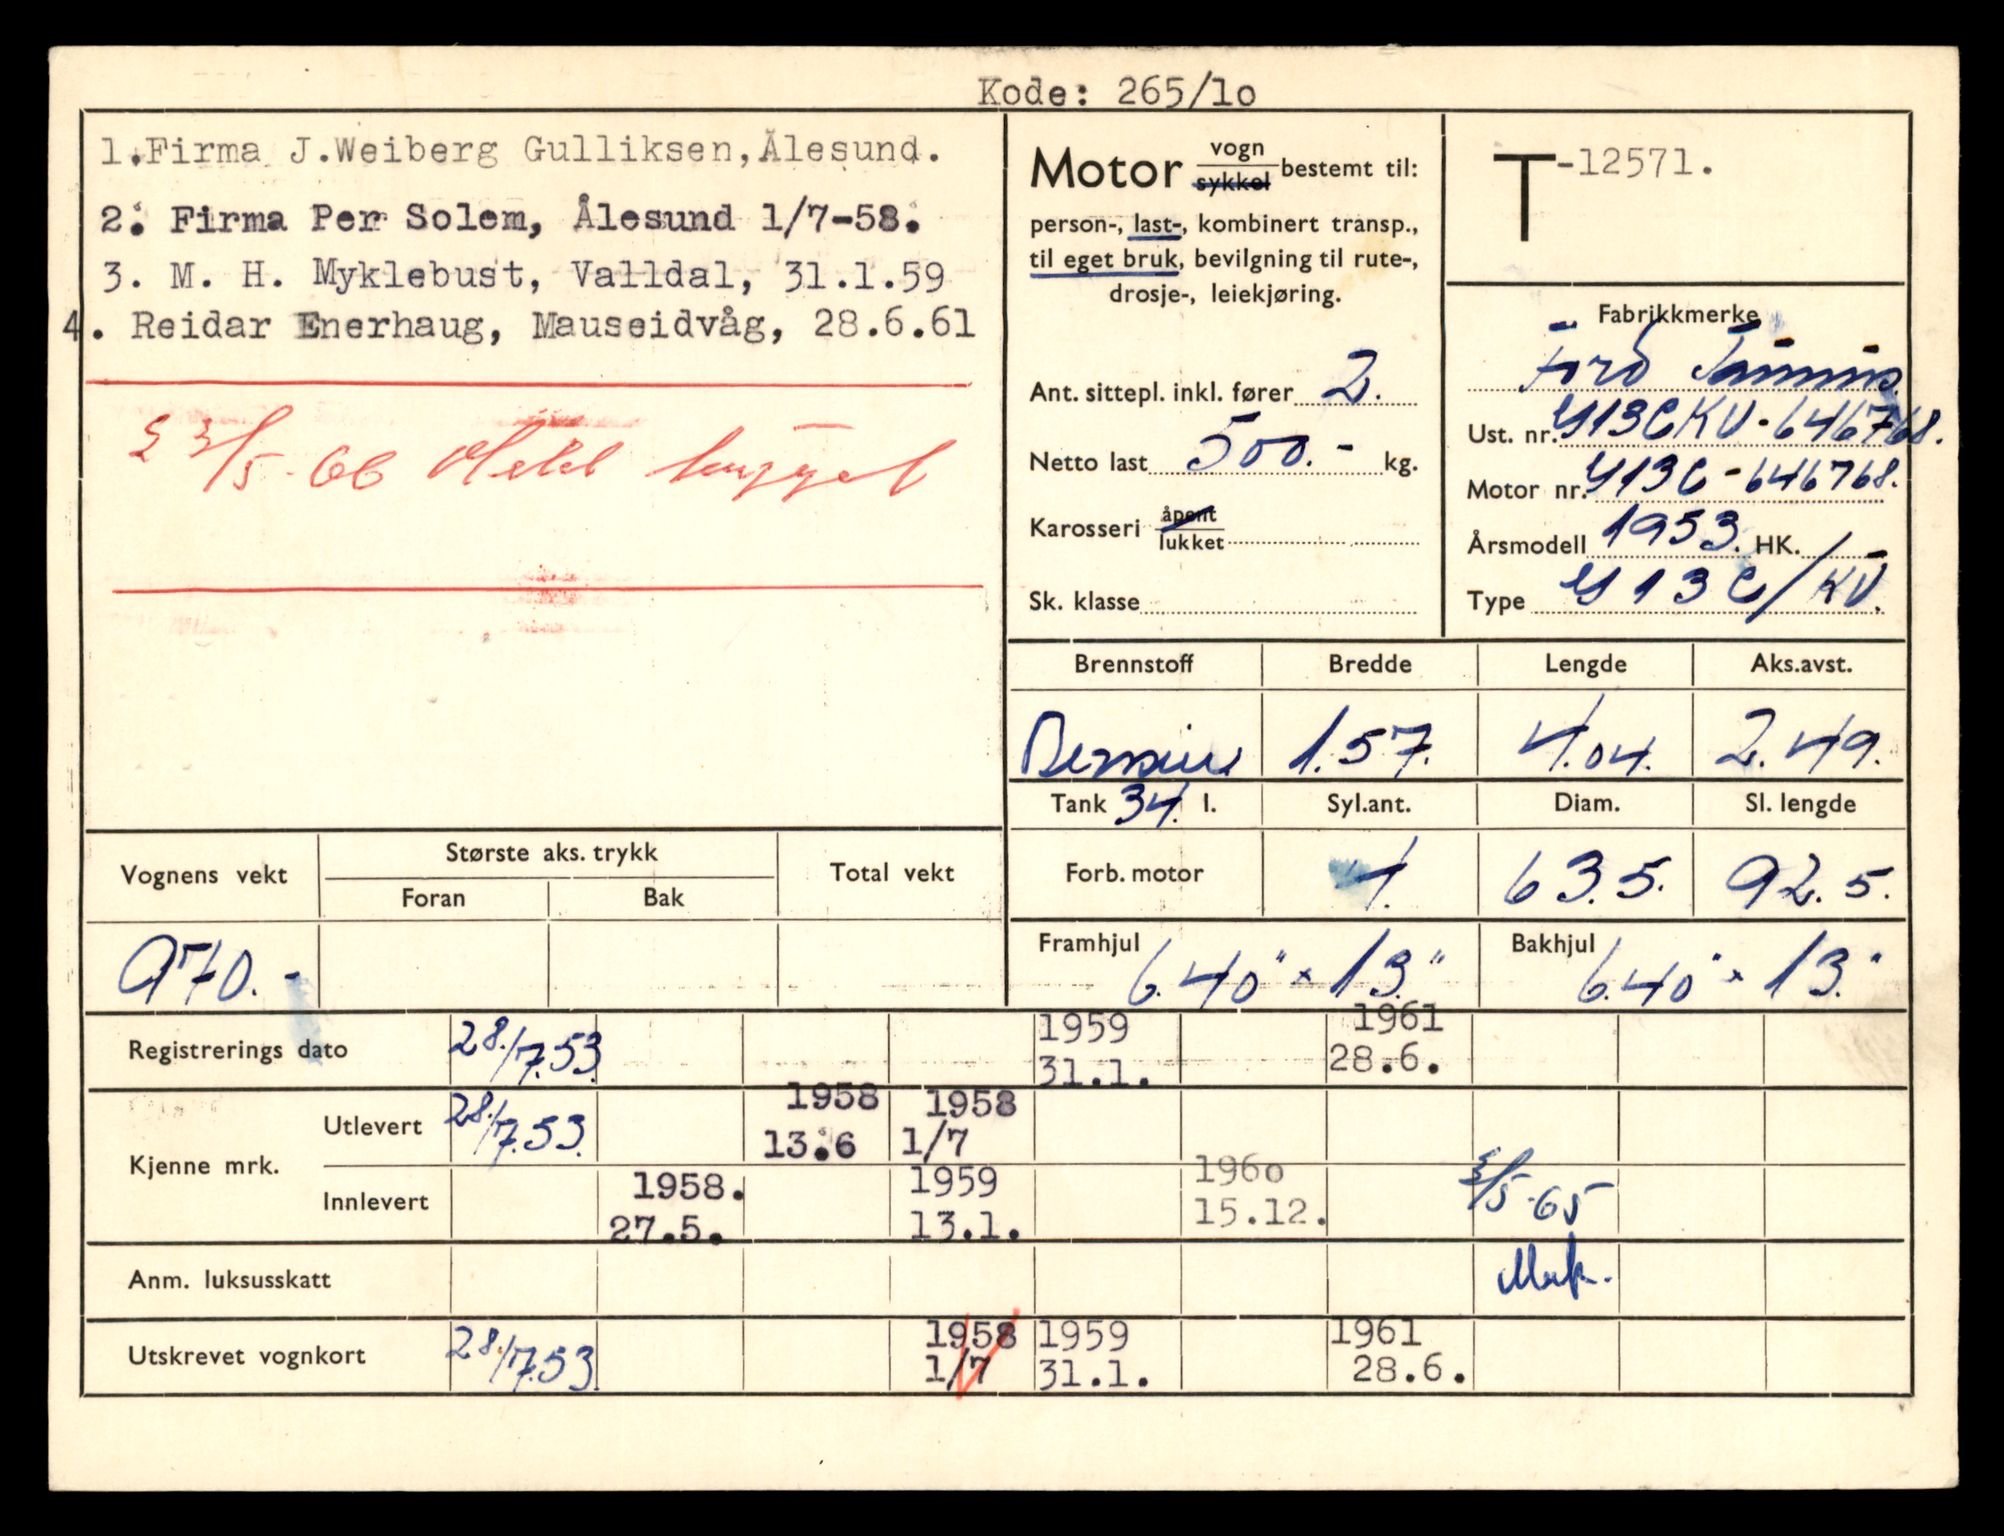 Kode: 265/1o
1.Firma J.Weiberg Gulliksen,Ålesund.
2. Firma Per Solem, Ålesund 1/7-58.
3. M. H. Myklebust, Valldal, 31.1.59
4. Reidar Enerhaug, Mauseidvåg, 28.6.61
3/5-66 Meldt hugget
Motor vogn sykkel bestemt til:
person-, last-, kombinert transp.,
til eget bruk, bevilgning til rute-,
drosje-, leiekjøring.
Ant. sittepl. inkl. fører 2.
Netto last 500.- kg.
Karosseri åpent lukket
Sk. klasse
T-12571.
Fabrikkmerke
Ford Taunus
Ust. nr. G13CKV-646768.
Motor nr. G13C-646768.
Årsmodell 1953. HK.
Type G13C/KV.
Brennstoff Bredde Lengde Aks.avst.
Bensin 1.57. 4.04. 2.49.
Tank 34 l. Syl.ant. Diam. Sl. lengde
Forb. motor 4. 63.5. 92.5.
Framhjul 6.40" x 13." Bakhjul 6.40" x 13."
Vognens vekt Største aks. trykk Total vekt
Foran Bak
970.-
Registrerings dato 28./7.53. 1959 31.1. 1961 28.6.
Kjenne mrk.
Utlevert 28./7.53. 1958 13.6 1958 1/7
Innlevert 1958. 27.5. 1959 13.1. 196o 15.12. 3/5-65
Anm. luksusskatt
Utskrevet vognkort 28./7.53. 1958 1/7 1959 31.1. 1961 28.6.